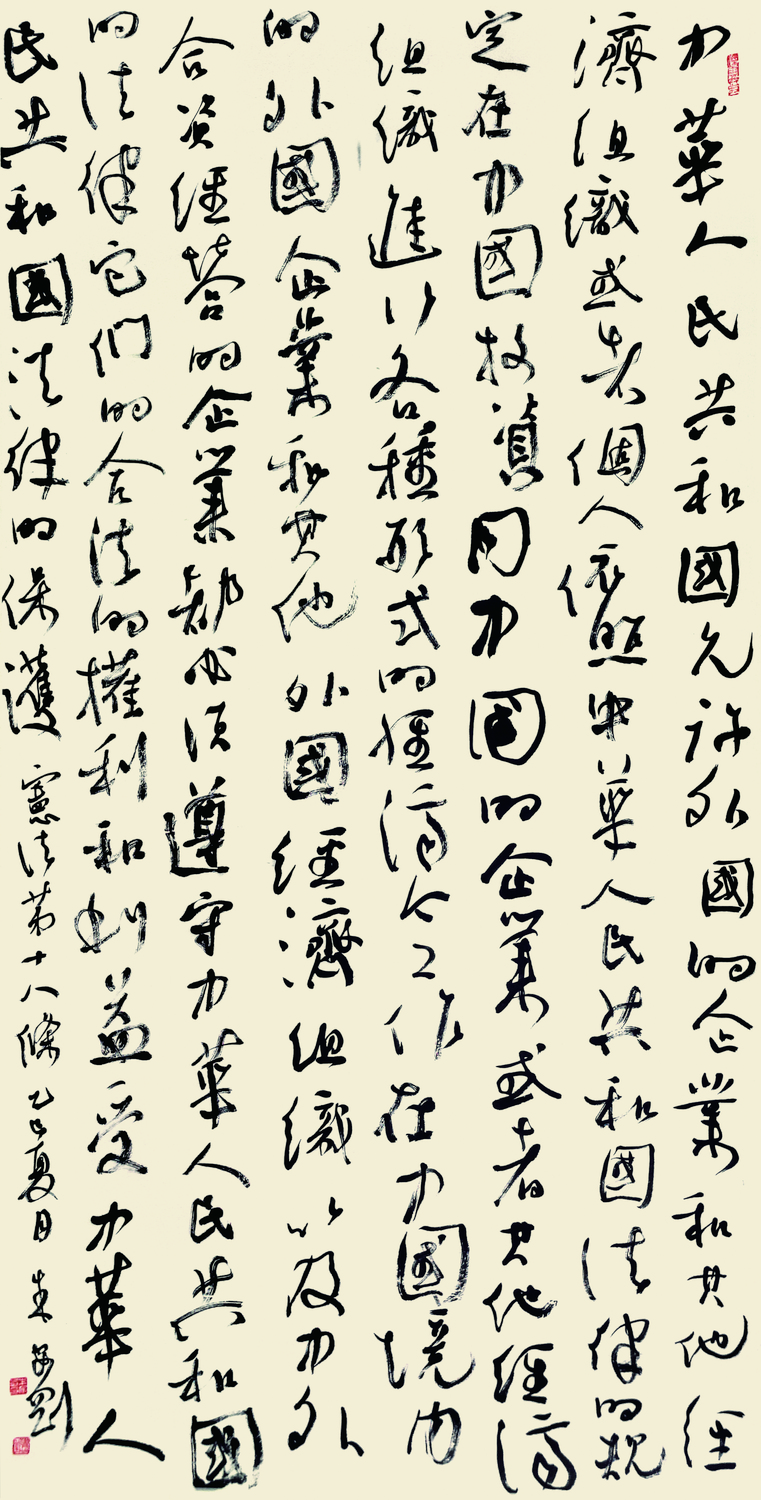 中華人民共和國允許外國的企業和其他經
濟組織或者個人依照中華人民共和國法律的規
定在中國投資同中國的企業或者其他經濟
組織進行各種形式的經濟合作在中國境內
的外國企業和其他外國經濟組織以及中外
合資經營的企業都必須遵守中華人民共和國
的法律它們的合法的權利和利益受中華人
民共和國法律的保護 憲法第十八條 乙巳夏日